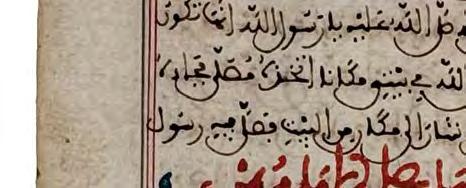 صلى الله عليه يا رسول الله انها تكون
الله في بيتي مكانا اتخذه مصلى فجاءه
اشار الى مكان من البيت فصلى فيه رسول